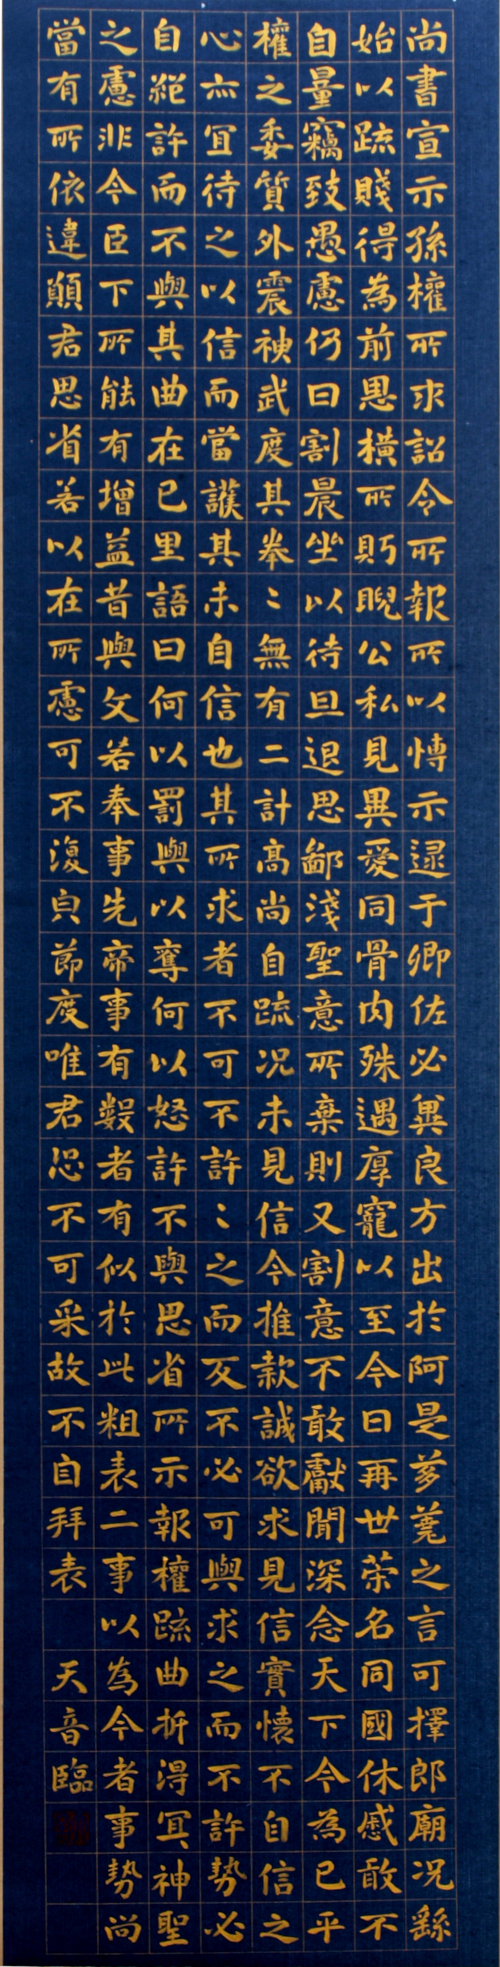 尚書宣示孫權所求詔令所報所以愽示逮于卿佐必異良方出於阿是芻蕘之言可擇郎廟况繇
始以疏賤得為前恩橫所眄睨公私見異愛同骨肉殊遇厚寵以至今日再世荣名同國休慼敢不
自量竊致愚慮仍日割晨坐以待旦退思鄙淺聖意所棄則又割意不敢獻聞深念天下今為已平
權之委質外震神武度其拳〻無有二計高尚自疏况未見信今推款誠欲求見信實懷不自信之
心亦宜待之以信而當護其未自信也其所求者不可不許〻之而反不必可與求之而不許勢必
自絕許而不與其曲在已里語曰何以罰與以奪何以怒許不與思省所示報權疏曲折得冝神聖
之慮非今臣下所能有增益昔與文若奉事先帝事有數者有似於此粗表二事以為今者事勢尚
當有所依違願君思省若以在所慮可不復皃節度唯君恐不可采故不自拜表 天音臨